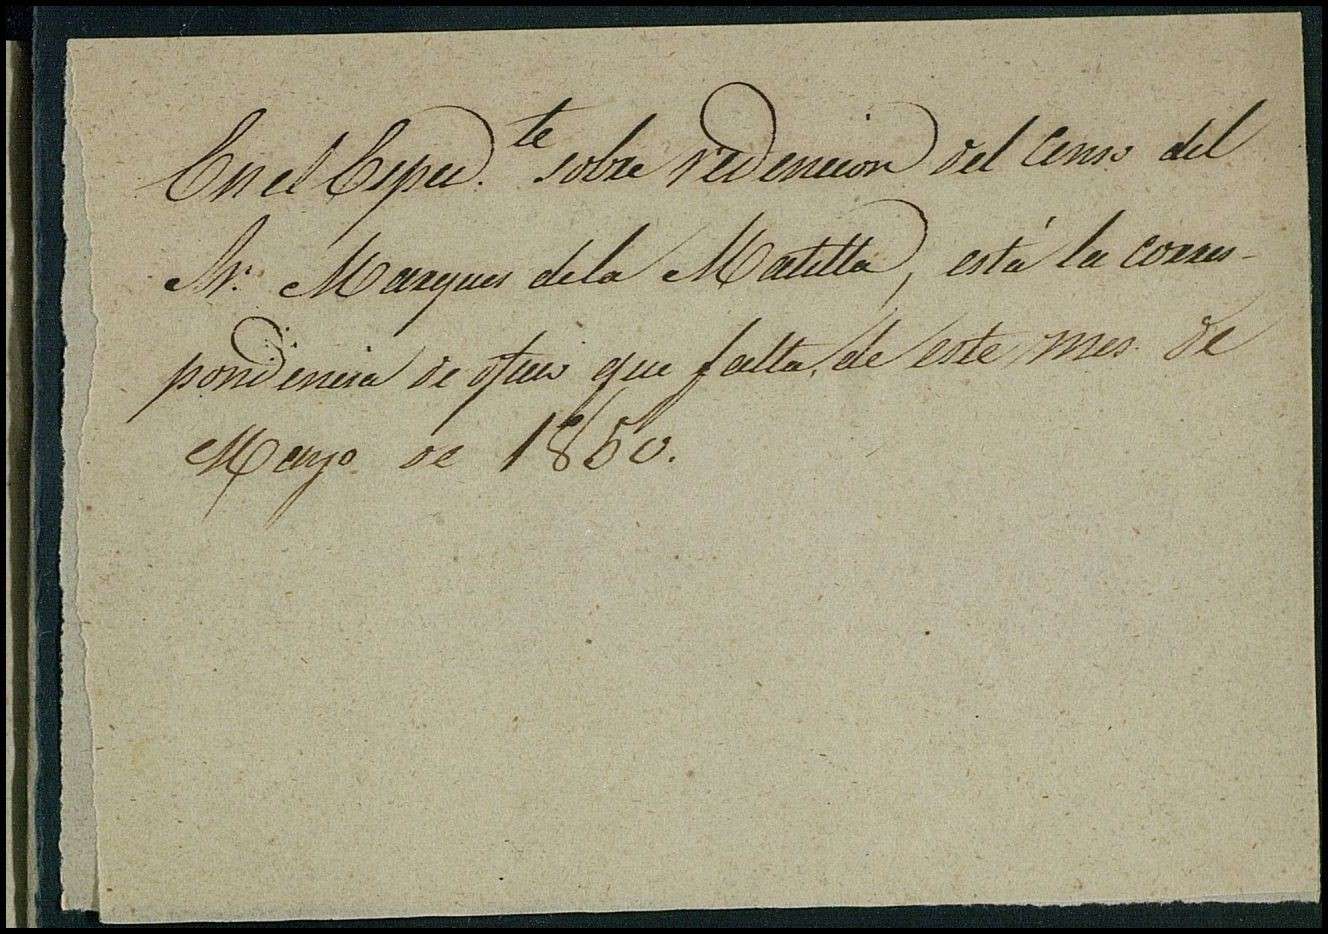 En el Esped.te sobre redencion del Censo del
Sr. Marques de la Matilla, está la corres-
pondencia de oficio que falta, de este mes de
Marzo de 1850.